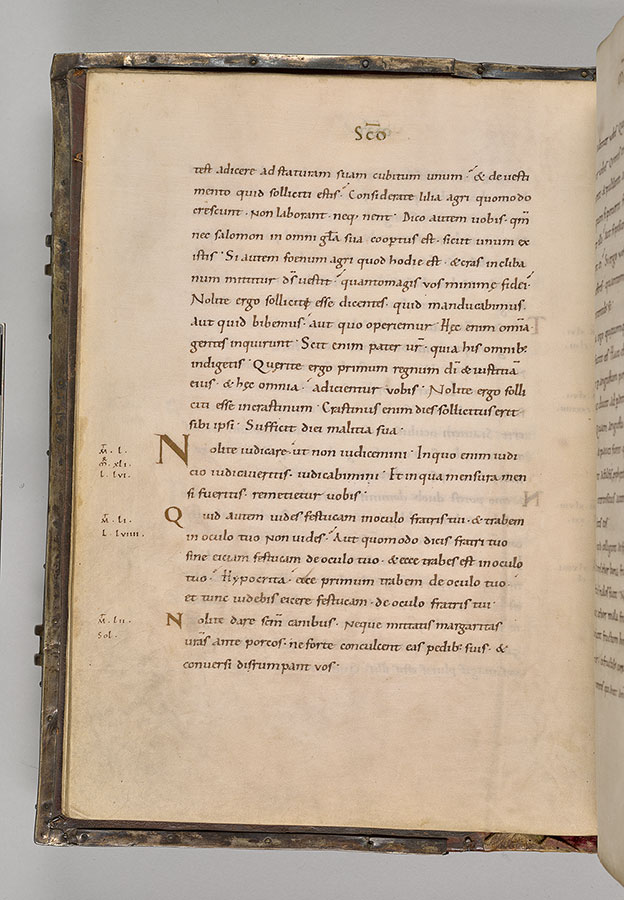 Sc̄o
test adicere ad staturam suam cubitum unum · & de uesti
mento quid solliciti estis · Considerate lilia agri quomodo
crescunt · Non laborant · neq; nent · Dico autem uobis · qm̄
nec salomon in omni gl̄a sua coopertus est · sicut unum ex
istis · Si autem foenum agri quod hodie est · & cras in cliba
num mittitur · dś uestit · quantomagis uos minimę fidei ·
Nolite ergo solliciti esse dicentes · quid manducabimus ·
aut quid bibemus · aut quo operiemur · Hęc enim omnia
gentes inquirunt · Scit enim pater ur̄ · quia his omnib;
indigetis · Querite ergo primum regnum dī & iustitia
eius · & hęc omnia · adicientur uobis · Nolite ergo solli
citi esse incrastinum · Crastinus enim dies sollicitus erit
sibi ipsi · Sufficit diei malitia sua ·
Nolite iudicare · ut non iudicemini · In quo enim iudi
cio iudicaueritis · iudicabimini · Et in qua mensura men
si fueritis · remetietur uobis ·
Quid autem uides festucam in oculo fratris tui · & trabem
in oculo tuo non uides · Aut quomodo dicis fratri tuo
sine eiciam festucam de oculo tuo · & ecce trabes est in oculo
tuo · Hypocrita · eice primum trabem de oculo tuo ·
et tunc uidebis eicere festucam · de oculo fratris tui ·
Nolite dare sc̄m canibus · Neque mittatis margaritas
ur̄as ante porcos · ne forte conculcent eas pedib; suis · &
conuersi disrumpant vos ·
M̄ · L ·
M̄ · XLI ·
L · LVI ·
M̄ · LI ·
L · LVIIII ·
M̄ · LII ·
Sol ·